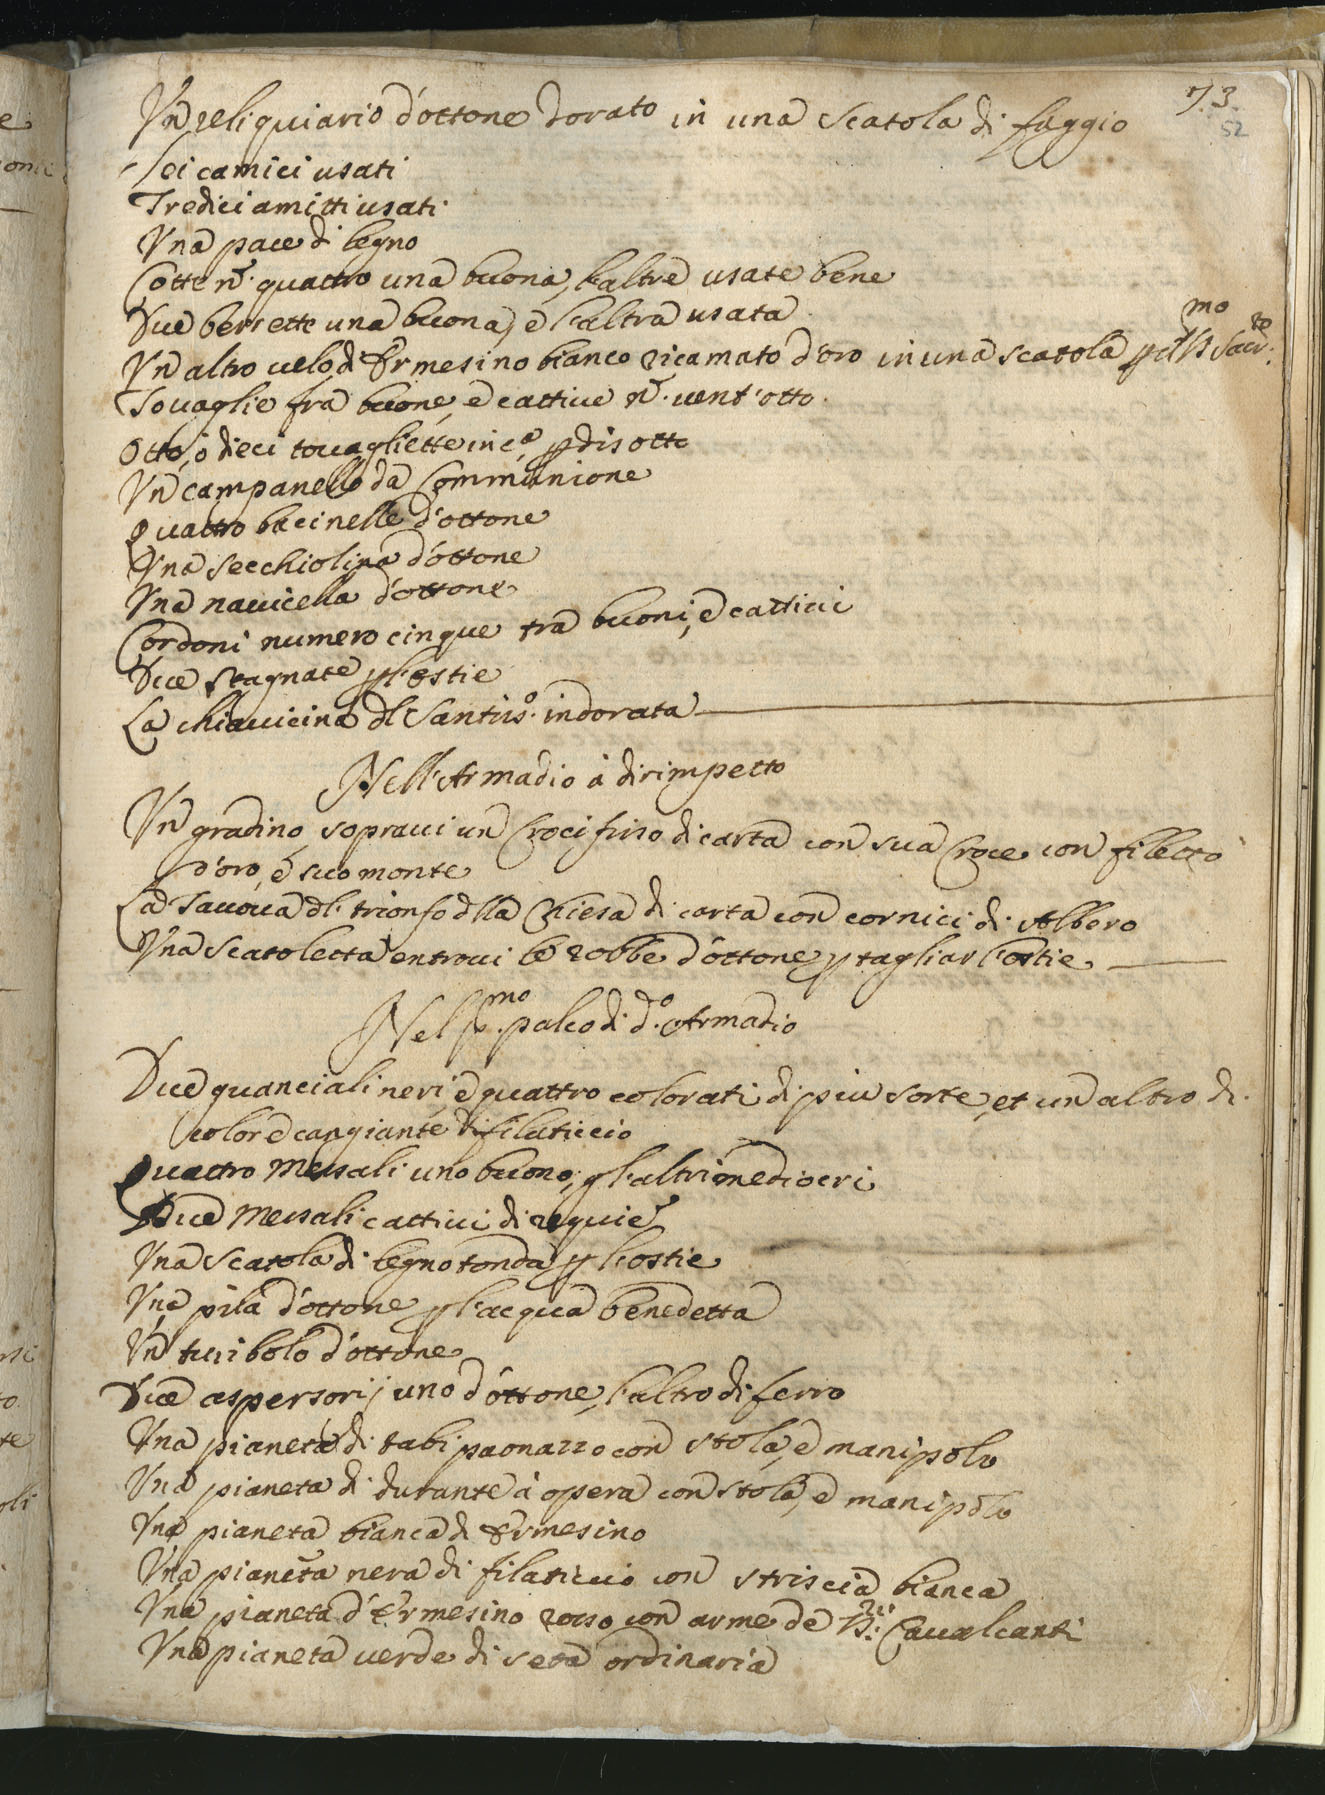 73.
52
Un reliquiario d'ottone dorato in una scatola di faggio
Sei camici usati
Tredici amitti usati
Una pace di legno
Cotte n.º quattro una buona, l'altre usate bene
Due berrette una buona, e l'altra usata
Un altro velo di Ermesino bianco ricamato d'oro in una scatola p il SS.mo Sacr.to
Tovaglie fra buone, e cattive n.º vent'otto
Otto, ò dieci tovagliette in c.ª p disotto
Un campanello da Communione
Quattro bacinelle d'ottone
Una secchiolina d'ottone
Una navicella d'ottone
Cordoni numero cinque tra buoni, e cattivi
Due stagnate p l'ostie
La chiavicina dl Santiss.º indorata
Nell'Armadio à dirimpetto
Un gradino, sopravi un Crocifisso di carta con sua Croce con filetto
d'oro, e suo monte
La Tavola dl trionfo dlla Chiesa di carta con cornici di Albero
Una scatoletta entrovi le robbe d'ottone p tagliar l'ostie
Nel p.mo palco di d.º Armadio
Due guanciali neri, e quattro colorati di più sorte, et un altro di
colore cangiante di filaticcio
Quattro Messali uno buono, gl'altri mediocri
Due Messali cattivi di requie
Una scatola di legno tonda p l'ostie
Una pila d'ottone p l'acqua benedetta
Un turibolo d'ottone
Due aspersorij uno d'ottone, l'altro di ferro
Una pianeta di tabi paonazzo con stola, e manipolo
Una pianeta di durante à opera con stola, e manipolo
Una pianeta bianca di Ermesino
Una pianeta nera di filaticcio con striscia bianca
Una pianeta d'Ermesino rosso con arme de SS.ri Cavalcanti
Una pianeta verde di seta ordinaria